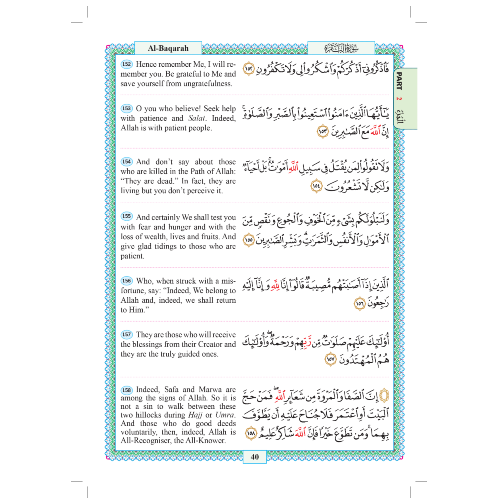 Al-Baqarah
سُورَةُ البَقَـرَةِ
152 Hence remember Me, I will re-
member you. Be grateful to Me and
save yourself from ungratefulness.
فَاذْكُرُونِي أَذْكُرْكُمْ وَاشْكُرُوا لِي وَلَا تَكْفُرُونِ ١٥٢
PART 2
153 O you who believe! Seek help
with patience and Salat. Indeed,
Allah is with patient people.
يَا أَيُّهَا الَّذِينَ آمَنُوا اسْتَعِينُوا بِالصَّبْرِ وَالصَّلَاةِ
إِنَّ اللَّهَ مَعَ الصَّابِرِينَ ١٥٣
154 And don't say about those
who are killed in the Path of Allah:
"They are dead." In fact, they are
living but you don't perceive it.
وَلَا تَقُولُوا لِمَن يُقْتَلُ فِي سَبِيلِ اللَّهِ أَمْوَاتٌ بَلْ أَحْيَاءٌ
وَلَٰكِن لَّا تَشْعُرُونَ ١٥٤
155 And certainly We shall test you
with fear and hunger and with the
loss of wealth, lives and fruits. And
give glad tidings to those who are
patient.
وَلَنَبْلُوَنَّكُم بِشَيْءٍ مِّنَ الْخَوْفِ وَالْجُوعِ وَنَقْصٍ مِّنَ
الْأَمْوَالِ وَالْأَنفُسِ وَالثَّمَرَاتِ وَبَشِّرِ الصَّابِرِينَ ١٥٥
156 Who, when struck with a mis-
fortune, say: "Indeed, We belong to
Allah and, indeed, we shall return
to Him."
الَّذِينَ إِذَا أَصَابَتْهُم مُّصِيبَةٌ قَالُوا إِنَّا لِلَّهِ وَإِنَّا إِلَيْهِ
رَاجِعُونَ ١٥٦
157 They are those who will receive
the blessings from their Creator and
they are the truly guided ones.
أُولَٰئِكَ عَلَيْهِمْ صَلَوَاتٌ مِّن رَّبِّهِمْ وَرَحْمَةٌ وَأُولَٰئِكَ
هُمُ الْمُهْتَدُونَ ١٥٧
158 Indeed, Safa and Marwa are
among the signs of Allah. So it is
not a sin to walk between these
two hillocks during Hajj or Umra.
And those who do good deeds
voluntarily, then, indeed, Allah is
All-Recogniser, the All-Knower.
إِنَّ الصَّفَا وَالْمَرْوَةَ مِن شَعَائِرِ اللَّهِ فَمَنْ حَجَّ
الْبَيْتَ أَوِ اعْتَمَرَ فَلَا جُنَاحَ عَلَيْهِ أَن يَطَّوَّفَ
بِهِمَا وَمَن تَطَوَّعَ خَيْرًا فَإِنَّ اللَّهَ شَاكِرٌ عَلِيمٌ ١٥٨
40